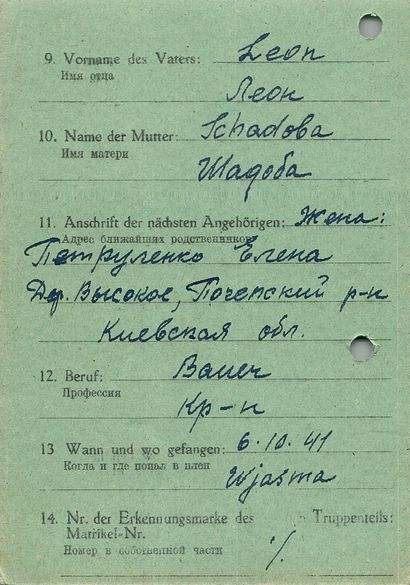 9. Vorname des Vaters: Leon
Имя отца
Леон
10. Name der Mutter: Schadoba
Имя матери
Шадоба
11. Anschrift der nächsten Angehörigen: Жена:
Адрес ближайших родственников
Петруленко Елена
Дер. Высокое, Почепский р-н
Киевская обл.
12. Beruf: Bauer
Профессия
Кр-н
13 Wann und wo gefangen: 6.10.41
Когда и где попал в плен
Wjasma
14. Nr. der Erkennungsmarke des Truppenteils:
Matrikel-Nr.
Номер в собственной части ./.